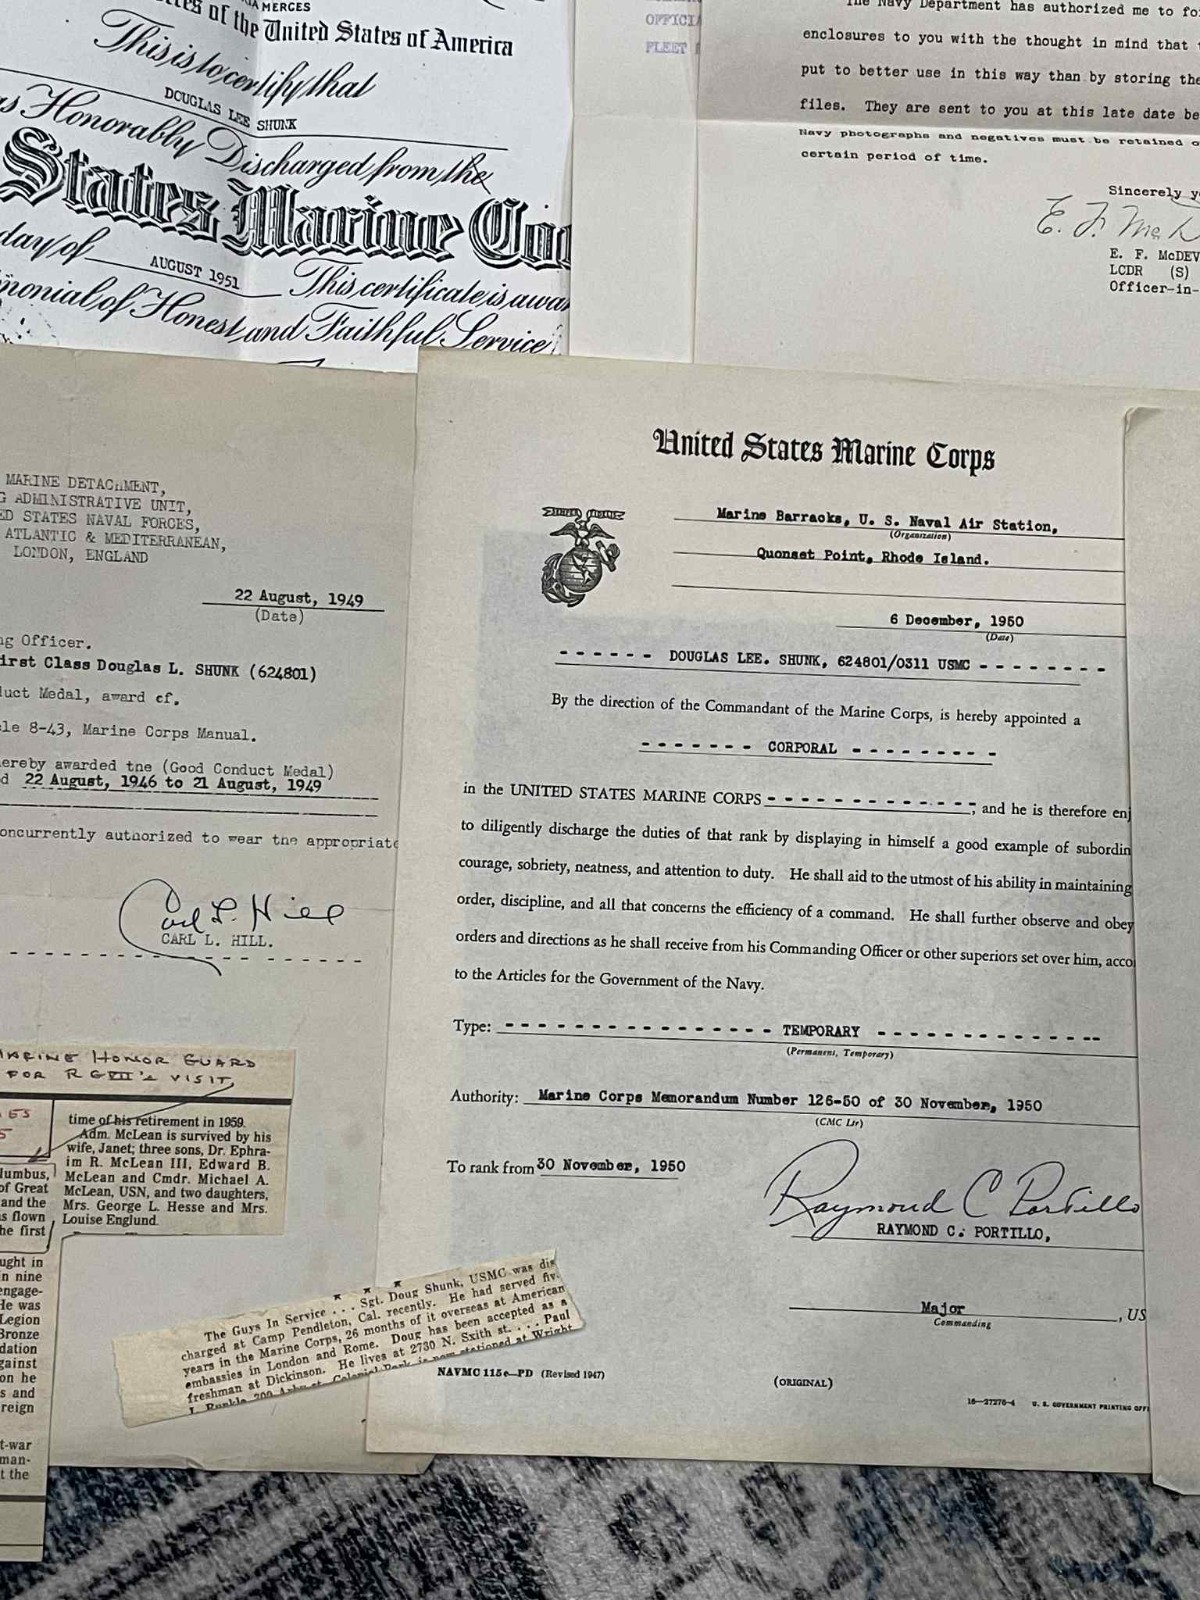 MERCES
of the United States of America
This is to certify that
DOUGLAS LEE SHUNK
Honorably Discharged from the
States Marine
day of AUGUST 1951 This certificate is
of Honest and Faithful Service
OFFICI
FLEET
The Navy Department has authorized me to
enclosures to you with the thought in mind that
put to better use in this way than by storing
files. They are sent to you at this late date
Navy photographs and negatives must be retained
certain period of time.
Sincerely
E. F. McD
E. F. McDEV
LCDR (S)
Officer-in-
MARINE DETACHMENT,
ADMINISTRATIVE UNIT,
STATES NAVAL FORCES,
ATLANTIC & MEDITERRANEAN,
LONDON, ENGLAND
22 August, 1949
(Date)
Officer.
irst Class Douglas L. SHUNK (624801)
Medal, award of.
8-43, Marine Corps Manual.
ereby awarded the (Good Conduct Medal)
22 August, 1946 to 21 August, 1949
oncurrently authorized to wear the appropriate
Carl L. Hill
CARL L. HILL.
MARINE HONOR GUARD
FOR RGVII'S VISIT
time of his retirement in 1959.
Adm. McLean is survived by his
wife, Janet; three sons, Dr. Ephra-
im R. McLean III, Edward B.
McLean and Cmdr. Michael A.
McLean, USN, and two daughters,
Mrs. George L. Hesse and Mrs.
Louise Englund.
lumbus,
of Great
and the
s flown
he first
ught in
n nine
engage-
He was
Legion
Bronze
dation
gainst
on he
s and
reign
t-war
man-
t the
United States Marine Corps
Marine Barracks, U. S. Naval Air Station,
(Organization)
Quonset Point, Rhode Island.
6 December, 1950
(Date)
- - - - - - DOUGLAS LEE. SHUNK, 624801/0311 USMC - - - - - - - -
By the direction of the Commandant of the Marine Corps, is hereby appointed a
- - - - - - - CORPORAL - - - - - - - -
in the UNITED STATES MARINE CORPS - - - - - - - - - - - - -, and he is therefore enj
to diligently discharge the duties of that rank by displaying in himself a good example of subordin
courage, sobriety, neatness, and attention to duty. He shall aid to the utmost of his ability in maintaining
order, discipline, and all that concerns the efficiency of a command. He shall further observe and obey
orders and directions as he shall receive from his Commanding Officer or other superiors set over him, acco
to the Articles for the Government of the Navy.
Type: - - - - - - - - - - - - - - - - TEMPORARY - - - - - - - - - - - - - -
(Permanent, Temporary)
Authority: Marine Corps Memorandum Number 126-50 of 30 November, 1950
(CMC Ltr)
To rank from 30 November, 1950
Raymond C Portillo
RAYMOND C. PORTILLO,
Major, US
Commanding
NAVMC 115e-PD (Revised 1947)
(ORIGINAL)
16—27276-4 U. S. GOVERNMENT PRINTING OFFI
The Guys In Service . . . Sgt. Doug Shunk, USMC was dis
charged at Camp Pendleton, Cal. recently. He had served five
years in the Marine Corps, 26 months of it overseas at American
embassies in London and Rome. Doug has been accepted as a
freshman at Dickinson. He lives at 2730 N. Sixth st. . . . Paul
stationed at Wright